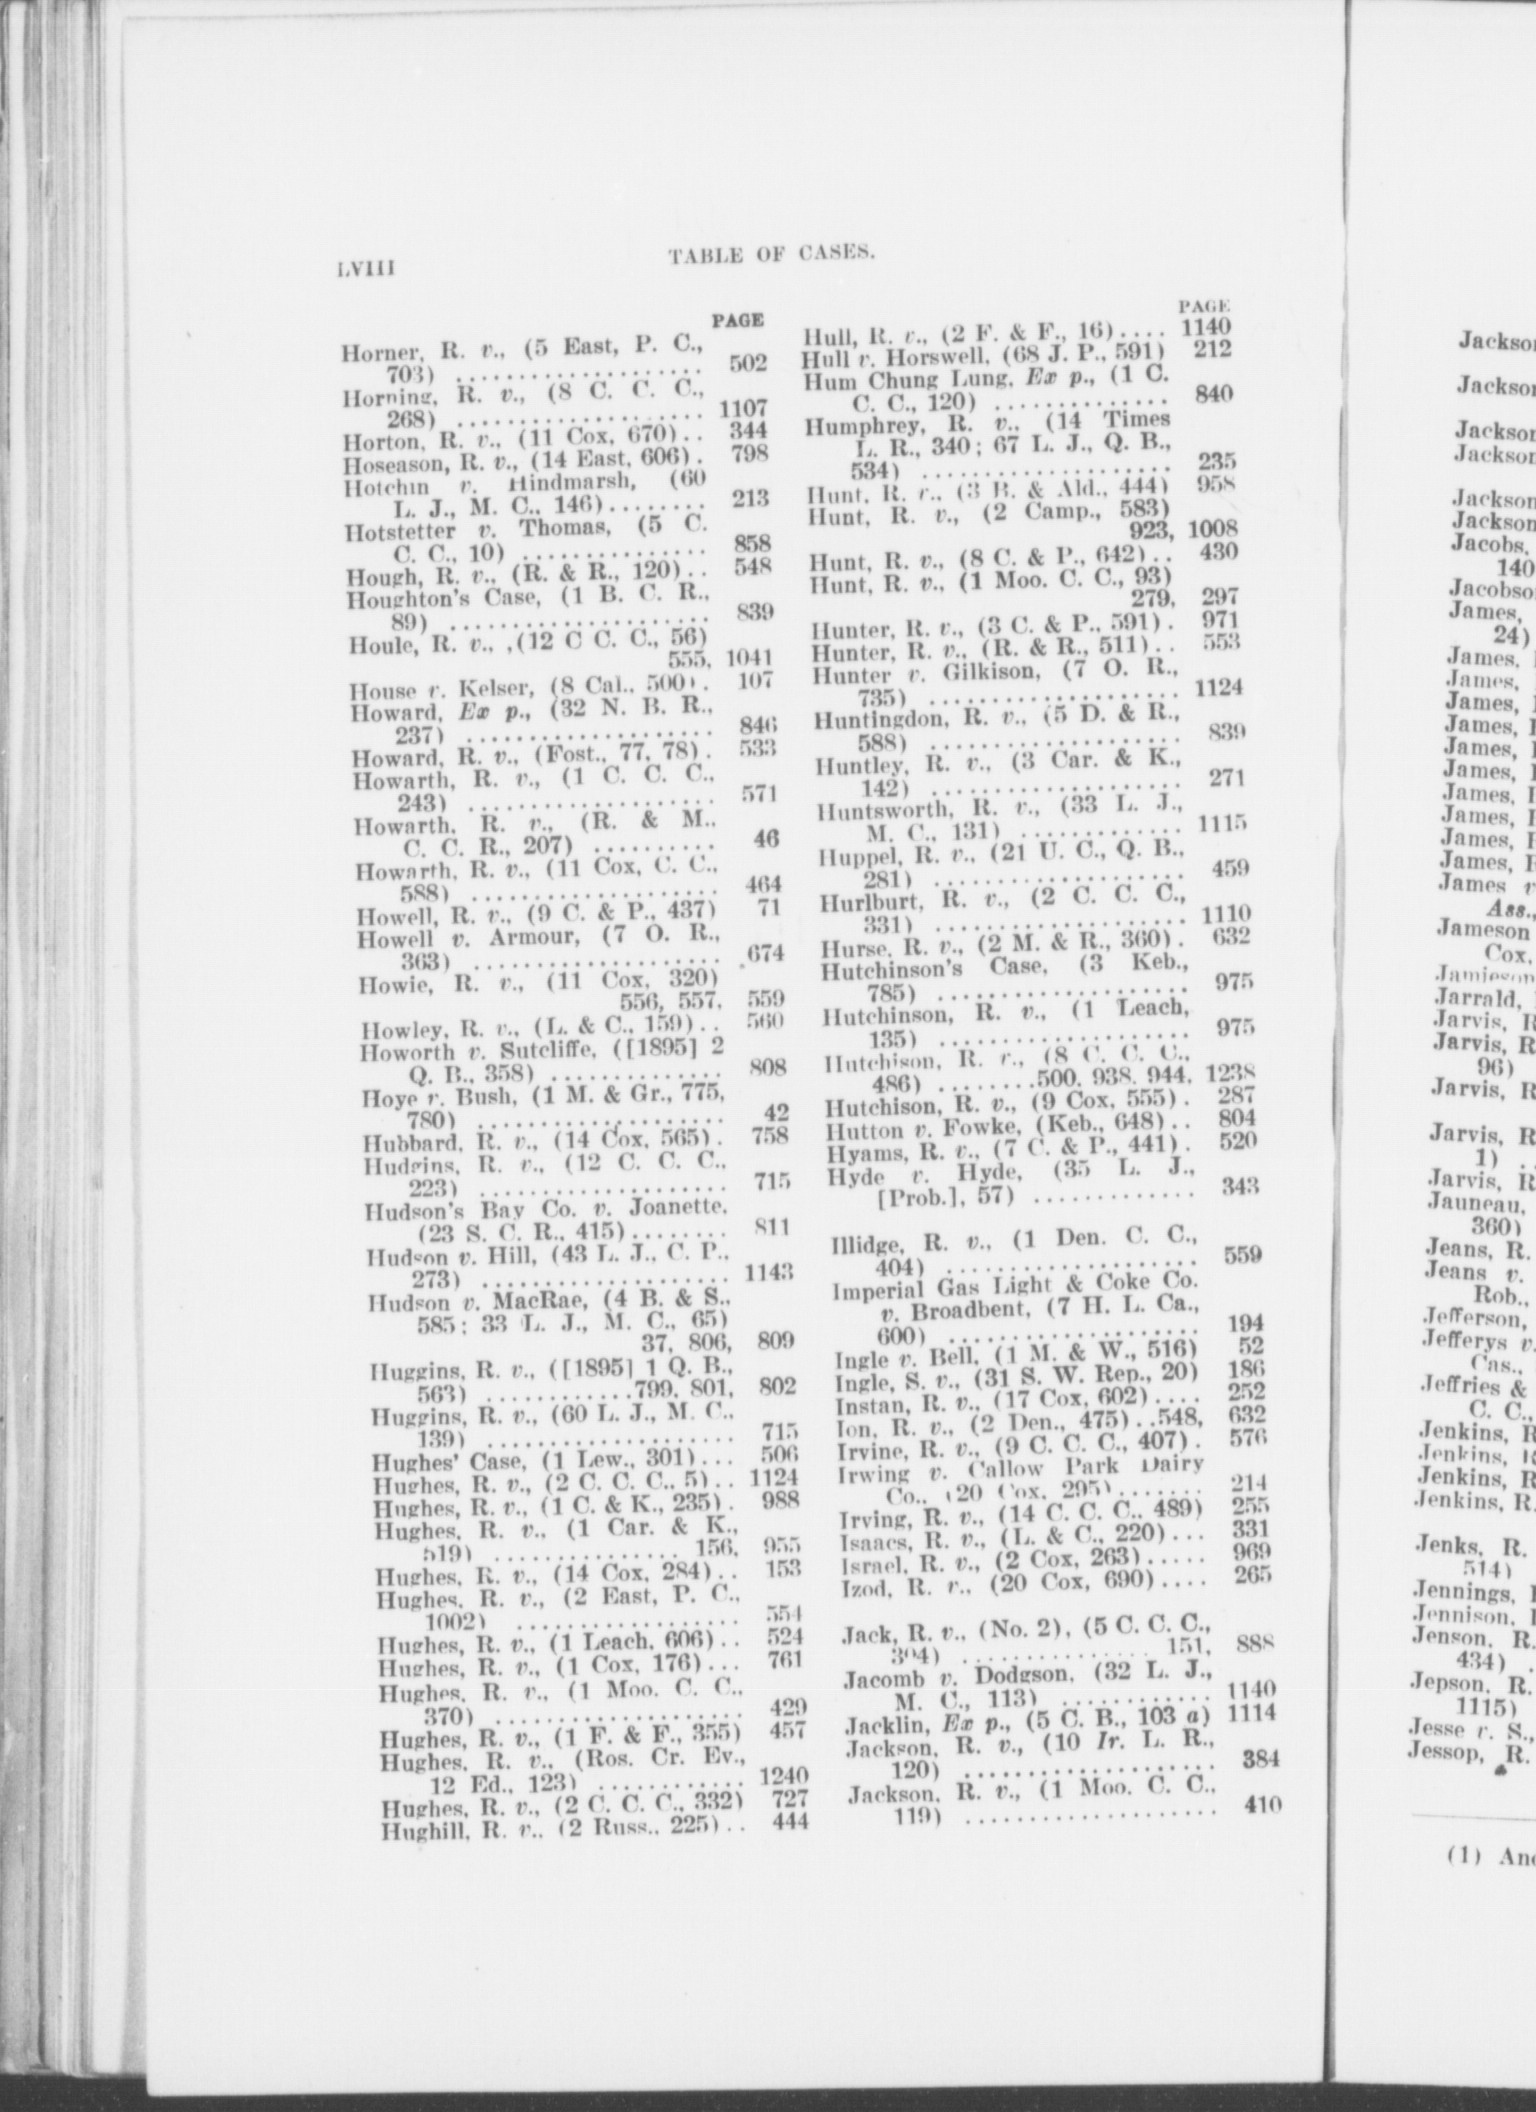 LVIII
TABLE OF CASES.
PAGE
Horner, R. v., (5 East, P. C.,
703) .................... 502
Horning, R. v., (8 C. C. C.,
268) .................... 1107
Horton, R. v., (11 Cox, 670).. 344
Hoseason, R. v., (14 East, 606). 798
Hotchin v. Hindmarsh, (60
L. J., M. C., 146)........ 213
Hotstetter v. Thomas, (5 C.
C. C., 10) ............... 858
Hough, R. v., (R. & R., 120).. 548
Houghton's Case, (1 B. C. R.,
89) ..................... 839
Houle, R. v., ,(12 C C. C., 56)
555, 1041
House v. Kelser, (8 Cal., 500). 107
Howard, Ex p., (32 N. B. R.,
237) .................... 846
Howard, R. v., (Fost., 77, 78). 533
Howarth, R. v., (1 C. C. C.,
243) .................... 571
Howarth, R. v., (R. & M.,
C. C. R., 207) .......... 46
Howarth, R. v., (11 Cox, C. C.,
588) .................... 464
Howell, R. v., (9 C. & P., 437) 71
Howell v. Armour, (7 O. R.,
363) .................... 674
Howie, R. v., (11 Cox, 320)
556, 557, 559
Howley, R. v., (L. & C., 159).. 560
Howorth v. Sutcliffe, ([1895] 2
Q. B., 358) .............. 808
Hoye v. Bush, (1 M. & Gr., 775,
780) .................... 42
Hubbard, R. v., (14 Cox, 565). 758
Hudgins, R. v., (12 C. C. C.,
223) .................... 715
Hudson's Bay Co. v. Joanette,
(23 S. C. R., 415)........ 811
Hudson v. Hill, (43 L. J., C. P.,
273) .................... 1143
Hudson v. MacRae, (4 B. & S.,
585; 33 L. J., M. C., 65)
37, 806, 809
Huggins, R. v., ([1895] 1 Q. B.,
563) ............799, 801, 802
Huggins, R. v., (60 L. J., M. C.,
139) .................... 715
Hughes' Case, (1 Lew., 301)... 506
Hughes, R. v., (2 C. C. C., 5).. 1124
Hughes, R. v., (1 C. & K., 235). 988
Hughes, R. v., (1 Car. & K.,
519) ............... 156, 955
Hughes, R. v., (14 Cox, 284).. 153
Hughes, R. v., (2 East, P. C.,
1002) .................. 554
Hughes, R. v., (1 Leach, 606).. 524
Hughes, R. v., (1 Cox, 176)... 761
Hughes, R. v., (1 Moo. C. C.,
370) .................... 429
Hughes, R. v., (1 F. & F., 355) 457
Hughes, R. v., (Ros. Cr. Ev.,
12 Ed., 123) ............ 1240
Hughes, R. v., (2 C. C. C., 332) 727
Hughill, R. v., (2 Russ., 225).. 444
PAGE
Hull, R. v., (2 F. & F., 16).... 1140
Hull v. Horswell, (68 J. P., 591) 212
Hum Chung Lung, Ex p., (1 C.
C. C., 120) .............. 840
Humphrey, R. v., (14 Times
L. R., 340; 67 L. J., Q. B.,
534) .................... 235
Hunt, R. v., (3 B. & Ald., 444) 958
Hunt, R. v., (2 Camp., 583)
923, 1008
Hunt, R. v., (8 C. & P., 642).. 430
Hunt, R. v., (1 Moo. C. C., 93)
279, 297
Hunter, R. v., (3 C. & P., 591). 971
Hunter, R. v., (R. & R., 511).. 553
Hunter v. Gilkison, (7 O. R.,
735) .................... 1124
Huntingdon, R. v., (5 D. & R.,
588) .................... 839
Huntley, R. v., (3 Car. & K.,
142) .................... 271
Huntsworth, R. v., (33 L. J.,
M. C., 131) ............. 1115
Huppel, R. v., (21 U. C., Q. B.,
281) .................... 459
Hurlburt, R. v., (2 C. C. C.,
331) .................... 1110
Hurse, R. v., (2 M. & R., 360). 632
Hutchinson's Case, (3 Keb.,
785) .................... 975
Hutchinson, R. v., (1 Leach,
135) .................... 975
Hutchison, R. v., (8 C. C. C.,
486) ........500, 938, 944, 1238
Hutchison, R. v., (9 Cox, 555). 287
Hutton v. Fowke, (Keb., 648).. 804
Hyams, R. v., (7 C. & P., 441). 520
Hyde v. Hyde, (35 L. J.,
[Prob.], 57) ............. 343
Illidge, R. v., (1 Den. C. C.,
404) .................... 559
Imperial Gas Light & Coke Co.
v. Broadbent, (7 H. L. Ca.,
600) .................... 194
Ingle v. Bell, (1 M. & W., 516) 52
Ingle, S. v., (31 S. W. Rep., 20) 186
Instan, R. v., (17 Cox, 602).... 252
Ion, R. v., (2 Den., 475)..548, 632
Irvine, R. v., (9 C. C. C., 407). 576
Irwing v. Callow Park Dairy
Co., (20 Cox, 295)....... 214
Irving, R. v., (14 C. C. C., 489) 255
Isaacs, R. v., (L. & C., 220)... 331
Israel, R. v., (2 Cox, 263)..... 969
Izod, R. v., (20 Cox, 690).... 265
Jack, R. v., (No. 2), (5 C. C. C.,
304) ............... 151, 888
Jacomb v. Dodgson, (32 L. J.,
M. C., 113) ............ 1140
Jacklin, Ex p., (5 C. B., 103 a) 1114
Jackson, R. v., (10 Ir. L. R.,
120) .................... 384
Jackson, R. v., (1 Moo. C. C.,
119) .................... 410
Jackson
Jackson
Jackson
Jackson
Jackson
Jackson
Jacobs,
140
Jacobson
James,
24)
James,
James,
James,
James,
James,
James,
James,
James,
James,
James,
James v
Ass.,
Jameson
Cox,
Jamieson
Jarrald,
Jarvis, R
Jarvis, R
96)
Jarvis, R
Jarvis, R
1) ..
Jarvis, R
Jauneau,
360)
Jeans, R.
Jeans v.
Rob.,
Jefferson,
Jefferys v.
Cas.,
Jeffries &
C. C.,
Jenkins, R
Jenkins, R
Jenkins, R
Jenkins, R.
Jenks, R.
514)
Jennings,
Jennison,
Jenson, R.
434) .
Jepson, R.
1115)
Jesse v. S.,
Jessop, R.
(1) And